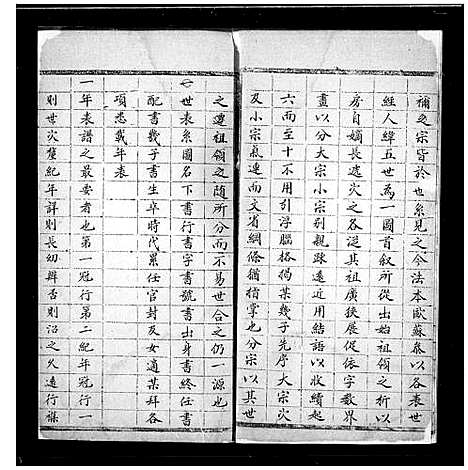 補之宗皆於世系見之今法本歐蘇參以各表世
經人緯五世為一圖首敘所從出始祖領之析以
房自嫡長處次之各從其祖廣狹展促依字數界
畫以分大宗小宗別親疎遠近用結語以收續起
六而至十不用引浮腦格揭某幾子先序大宗次
及小宗氣連而文省綱條猶指掌也分宗以其世
之遠祖領之隨所分而不易世合之仍一源也
一世表系圖名下書行書字書號書出身書終任書
配書幾子書生卒時代累任官封及女適某科各
項悉載年表
一年表譜之最要者也第一冠行第二紀年冠行一
則世次釐紀年詳則長幼辨否則沿之久遠行